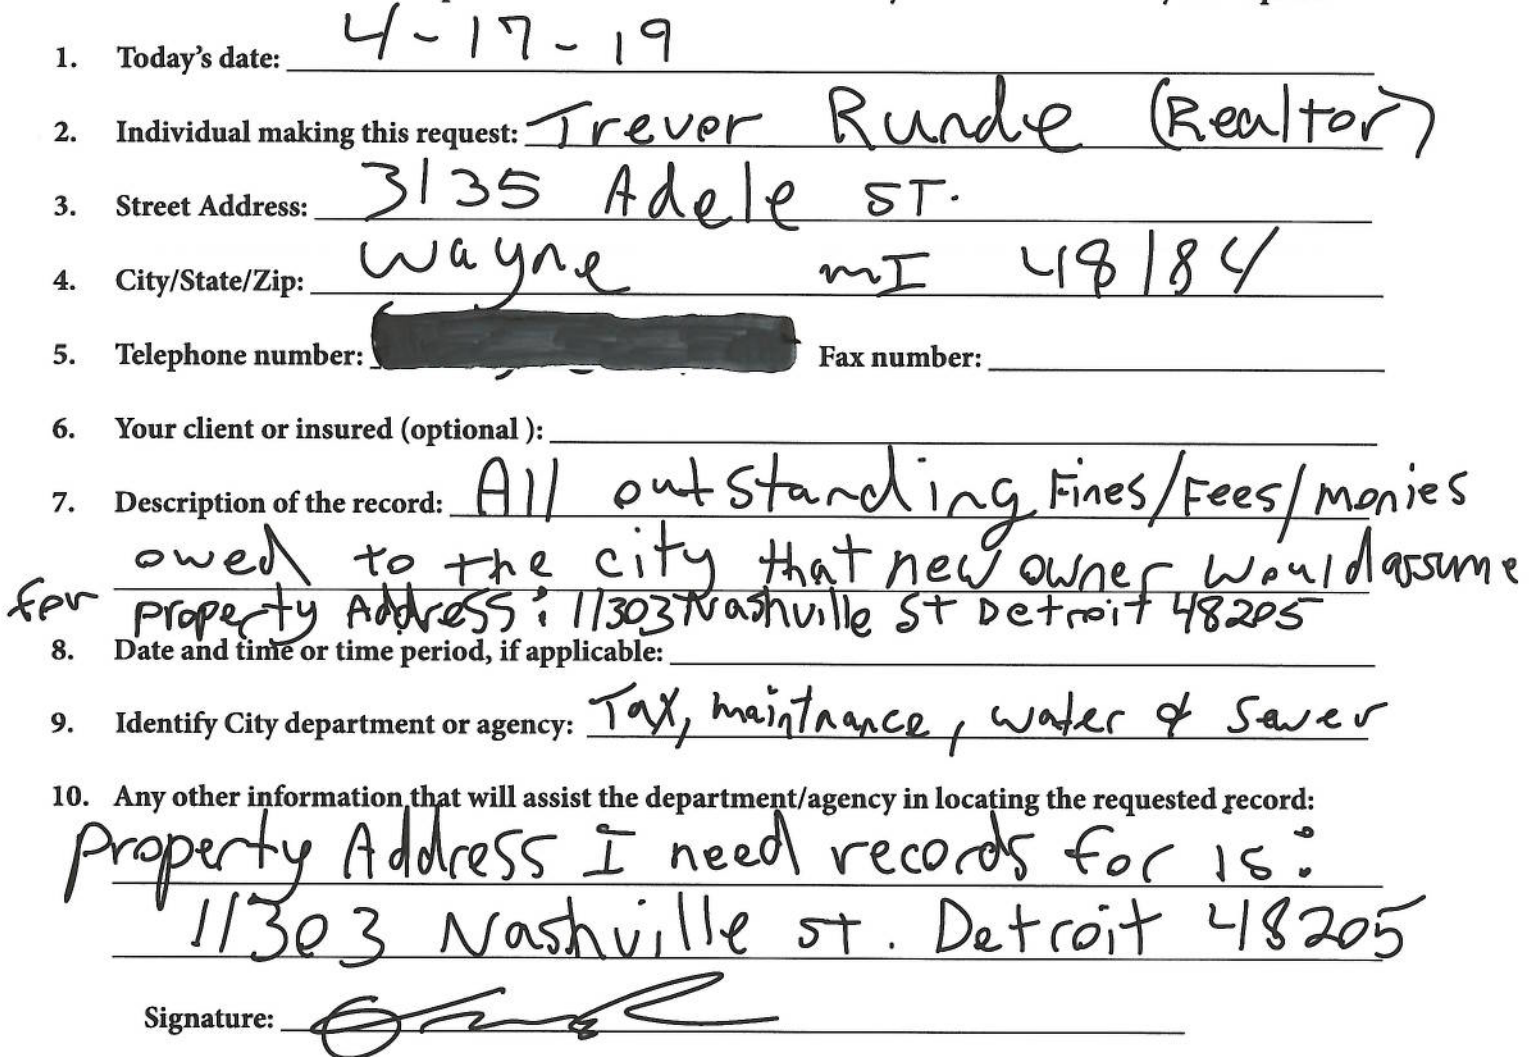 1. Today's date: 4-17-19
2. Individual making this request: Trever Runde (Realtor)
3. Street Address: 3135 Adele ST.
4. City/State/Zip: Wayne mI 48184
5. Telephone number: Fax number:
6. Your client or insured (optional ):
7. Description of the record: All outstanding Fines/Fees/monies
owed to the city that new owner would assume
for property Address: 11303 Nashville St Detroit 48205
8. Date and time or time period, if applicable:
9. Identify City department or agency: Tax, maintnance, water & Sewer
10. Any other information that will assist the department/agency in locating the requested record:
Property Address I need records for is:
11303 Nashville st. Detroit 48205
Signature: